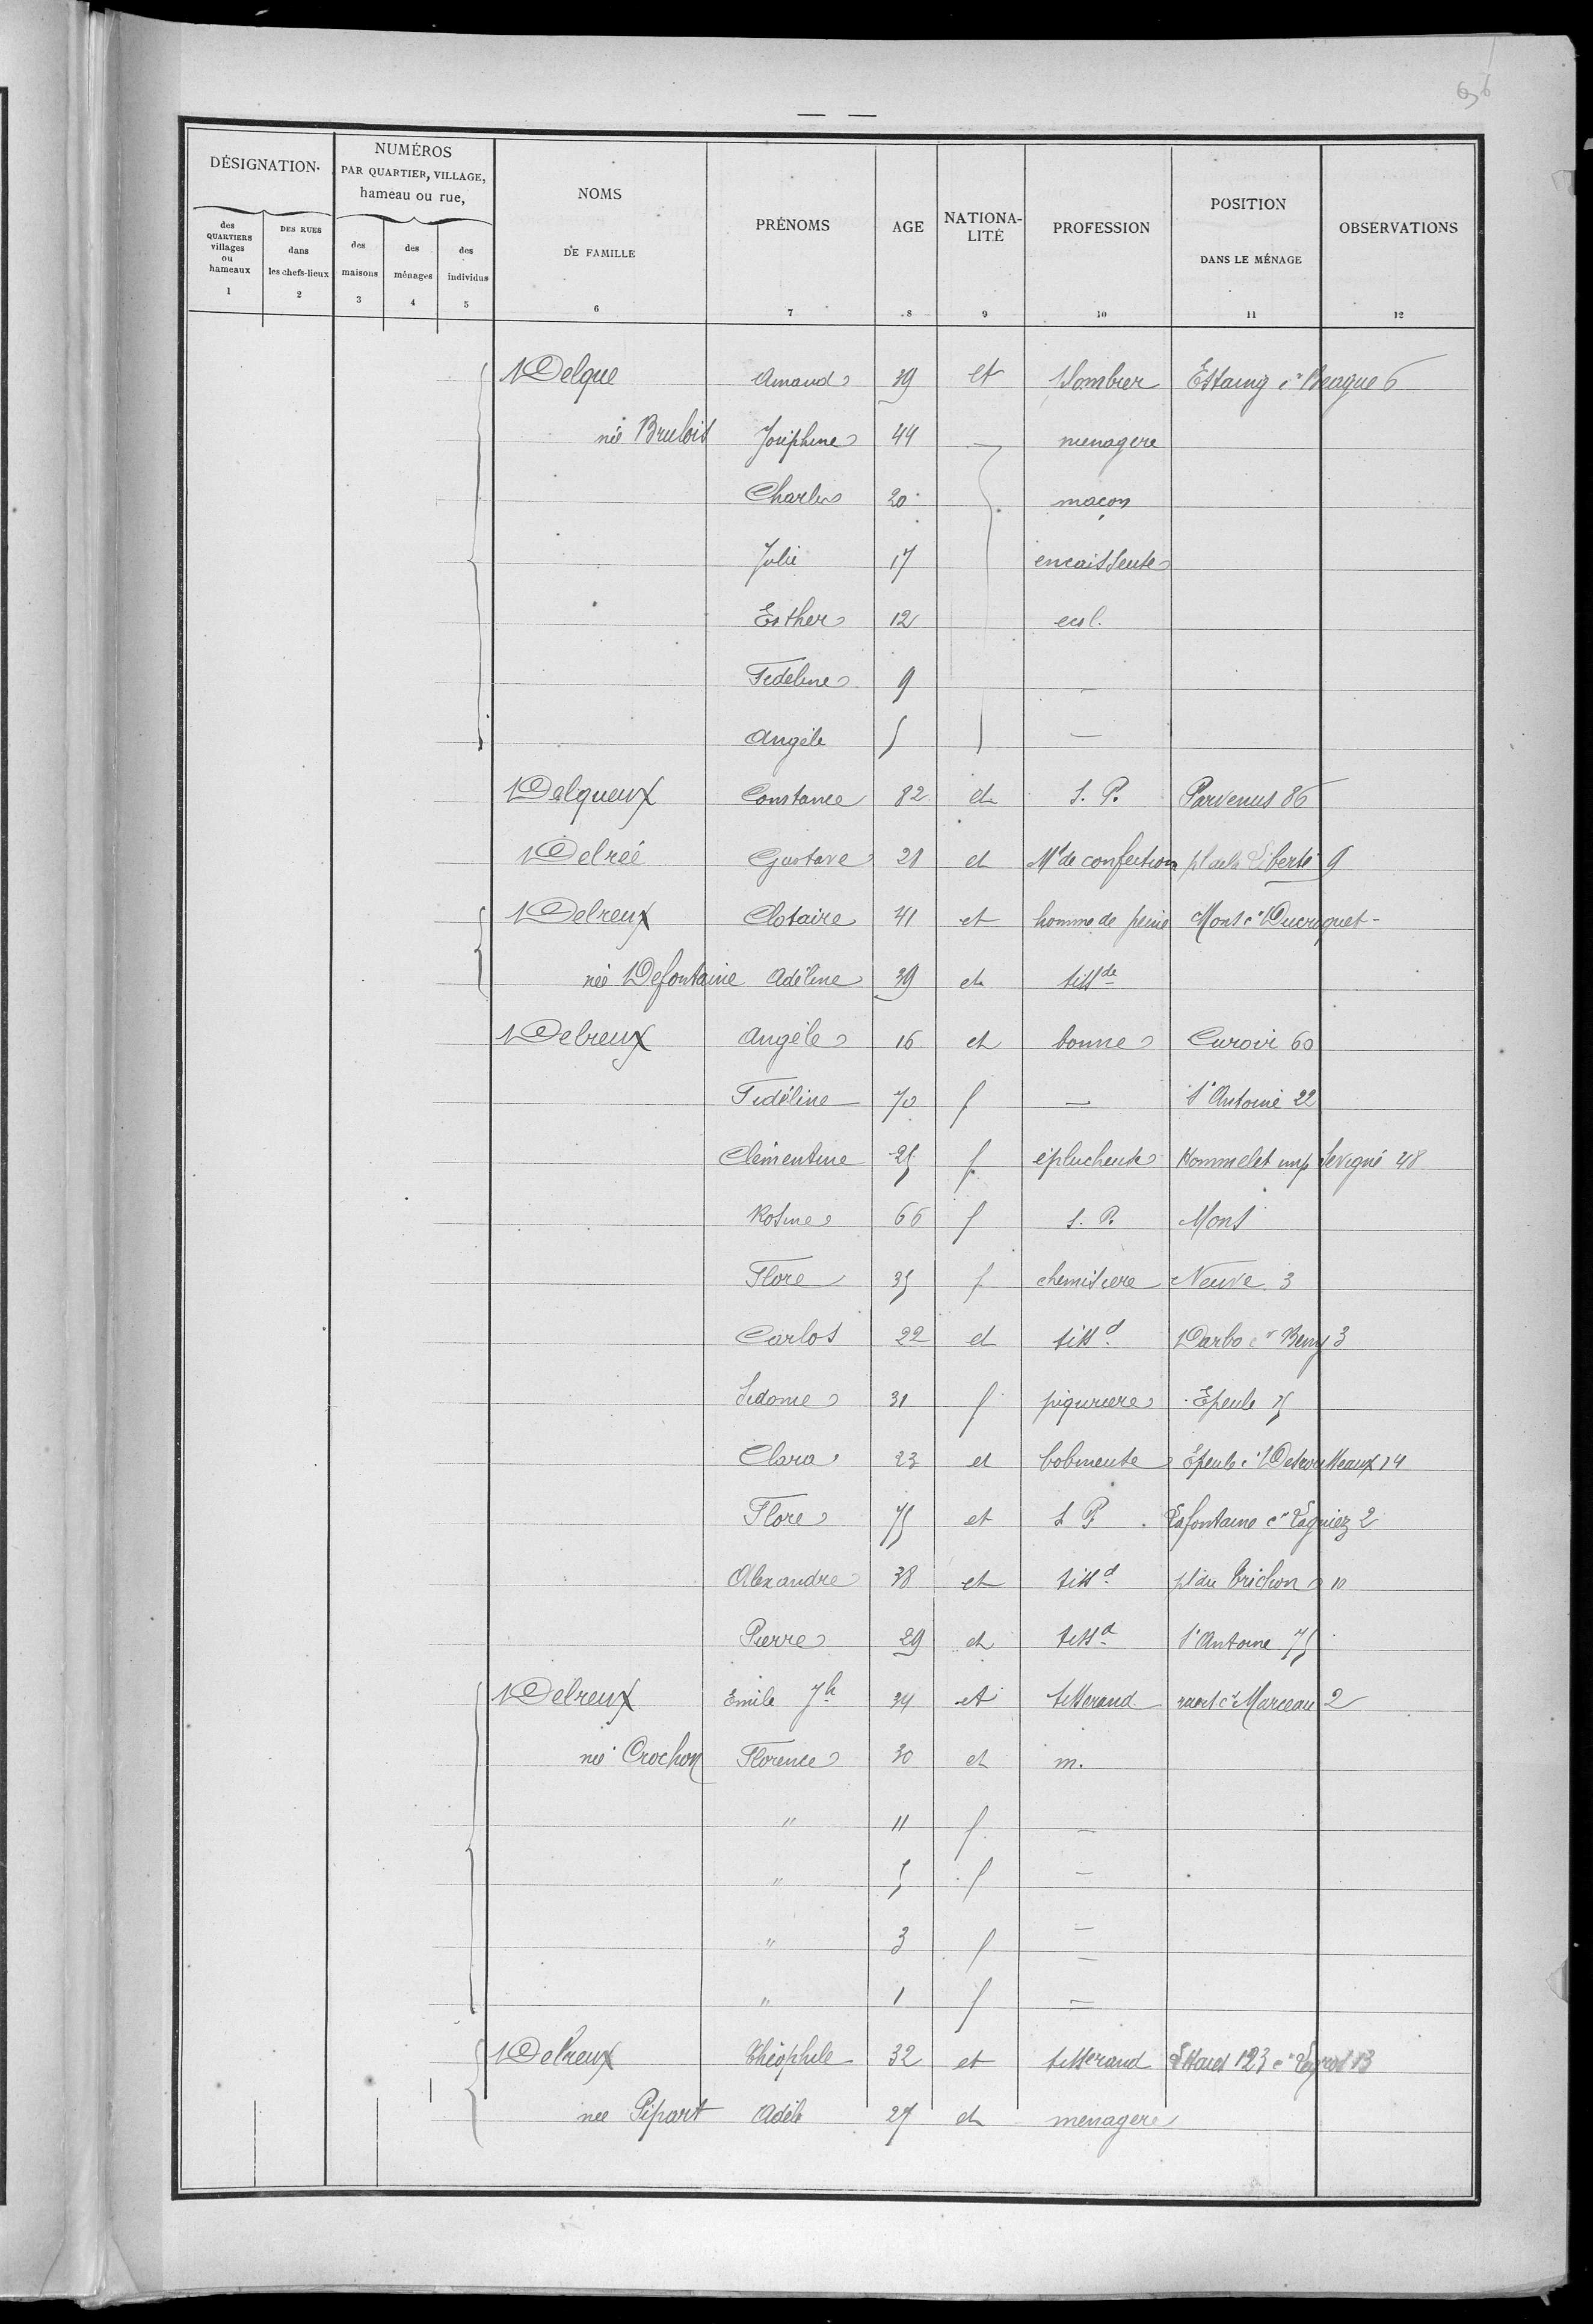 — —
DÉSIGNATION
NUMÉROS
PAR QUARTIER, VILLAGE,
hameau ou rue,
NOMS
DE FAMILLE
PRÉNOMS
AGE
NATIONA-
LITÉ
PROFESSION
POSITION
DANS LE MÉNAGE
OBSERVATIONS
des QUARTIERS villages ou hameaux
DES RUES dans les chefs-lieux
des maisons
des ménages
des individus
1 2 3 4 5 6 7 8 9 10 11 12
Delque Amand 39 et Plombier Estaing Cr 6
née Brulois Joséphine 44 — menagere
Charles 20 maçon
Julie 17 encaisseuse
Esther 12 ecol.
Fideline 9 —
Angèle 5 —
Delqueux Constance 82 et S. P. Parvenus 86
Delrée Gustave 21 et Md de confection pl de la Liberté 9
Delreux Clotaire 41 et homme de peine Mons Cr Ducroquet -
née Defontaine Adéline 39 et tissde
Delreux Angèle 16 et bonne Curoir 60
Fidéline 70 f — St Antoine 22
Clémentine 25 f éplucheuse Hommelet imp Sevigné 48
Rosine 66 f S. P. Mons
Flore 35 f chemisiere Neuve 3
Carlos 22 et tissd Darbo Cr Remy 3
Sidonie 31 f piqurière Epeule 75
Clara 23 et bobineuse Epeule Cr Desrousseaux 14
Flore 75 et S P. Lafontaine Cr Lagniez 2
Alexandre 38 et tissd pl du Trichon 10
Pierre 29 et tissd St Antoine 75
Delreux Emile Jh 34 et tisserand Cr Marceau 2
née Crochon Florence 30 et m.
" 11 f —
" 5 f —
" 3 f —
" 1 f —
Delreux Théophile 32 et tisserand 123 Cr 13
née Pipart Adèle 27 et menagere